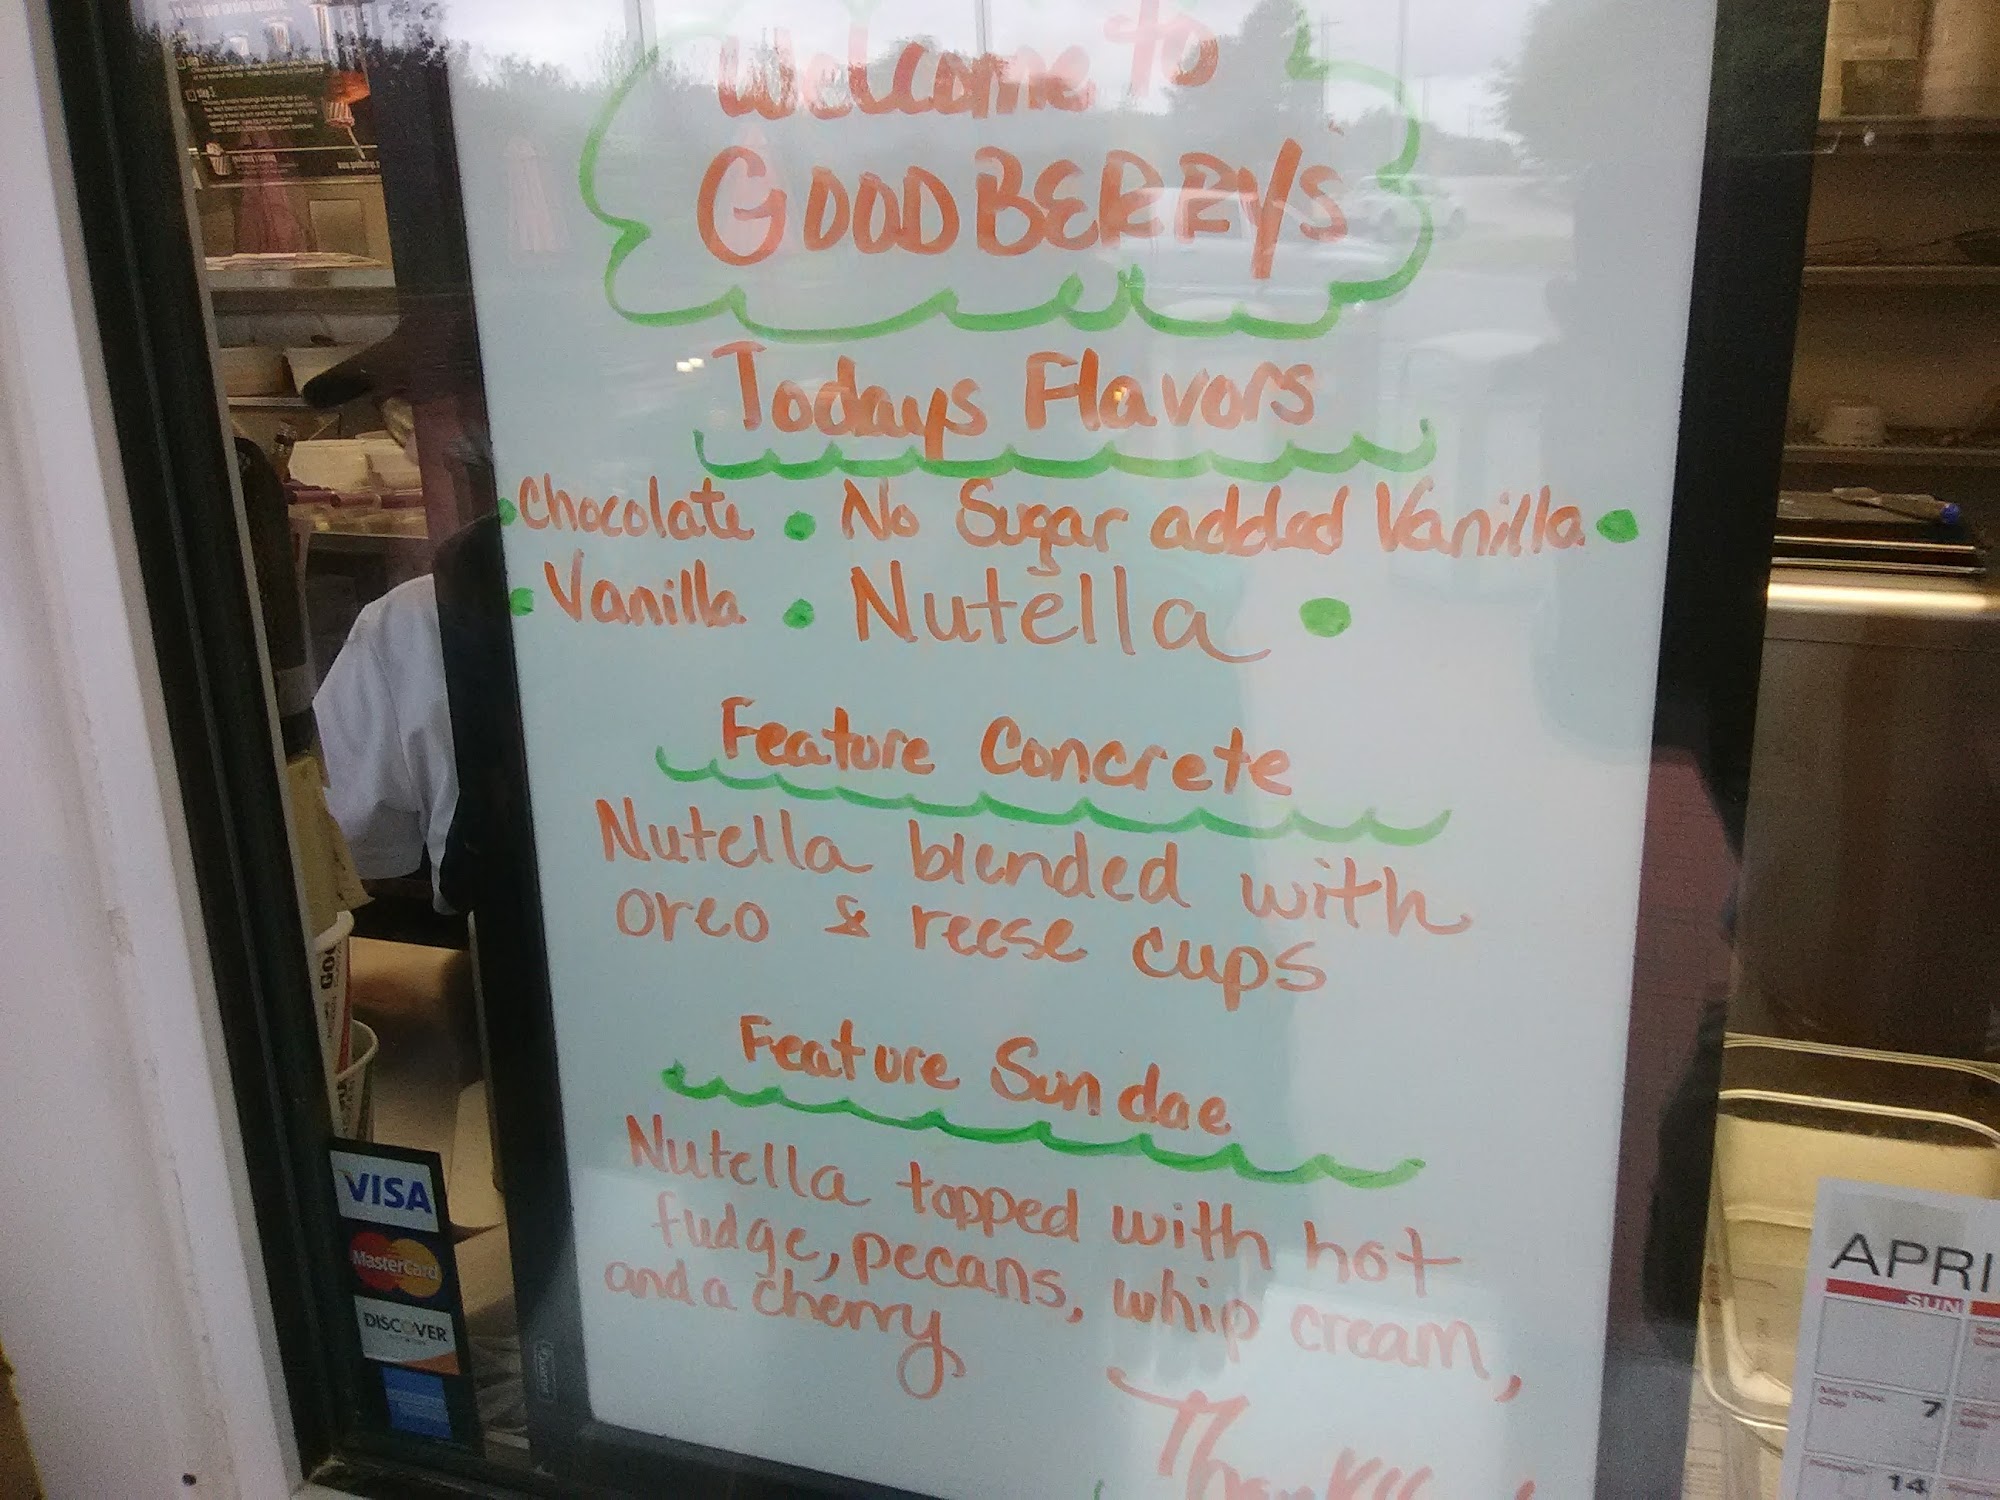 Welcome to
GOODBERRY'S
Todays Flavors
• Chocolate • No Sugar added Vanilla •
• Vanilla • Nutella •
Feature Concrete
Nutella blended with
oreo & reese cups
Feature Sundae
Nutella topped with hot
fudge, pecans, whip cream,
and a cherry
VISA
MasterCard
DISCOVER
APRI
SUN
7
14